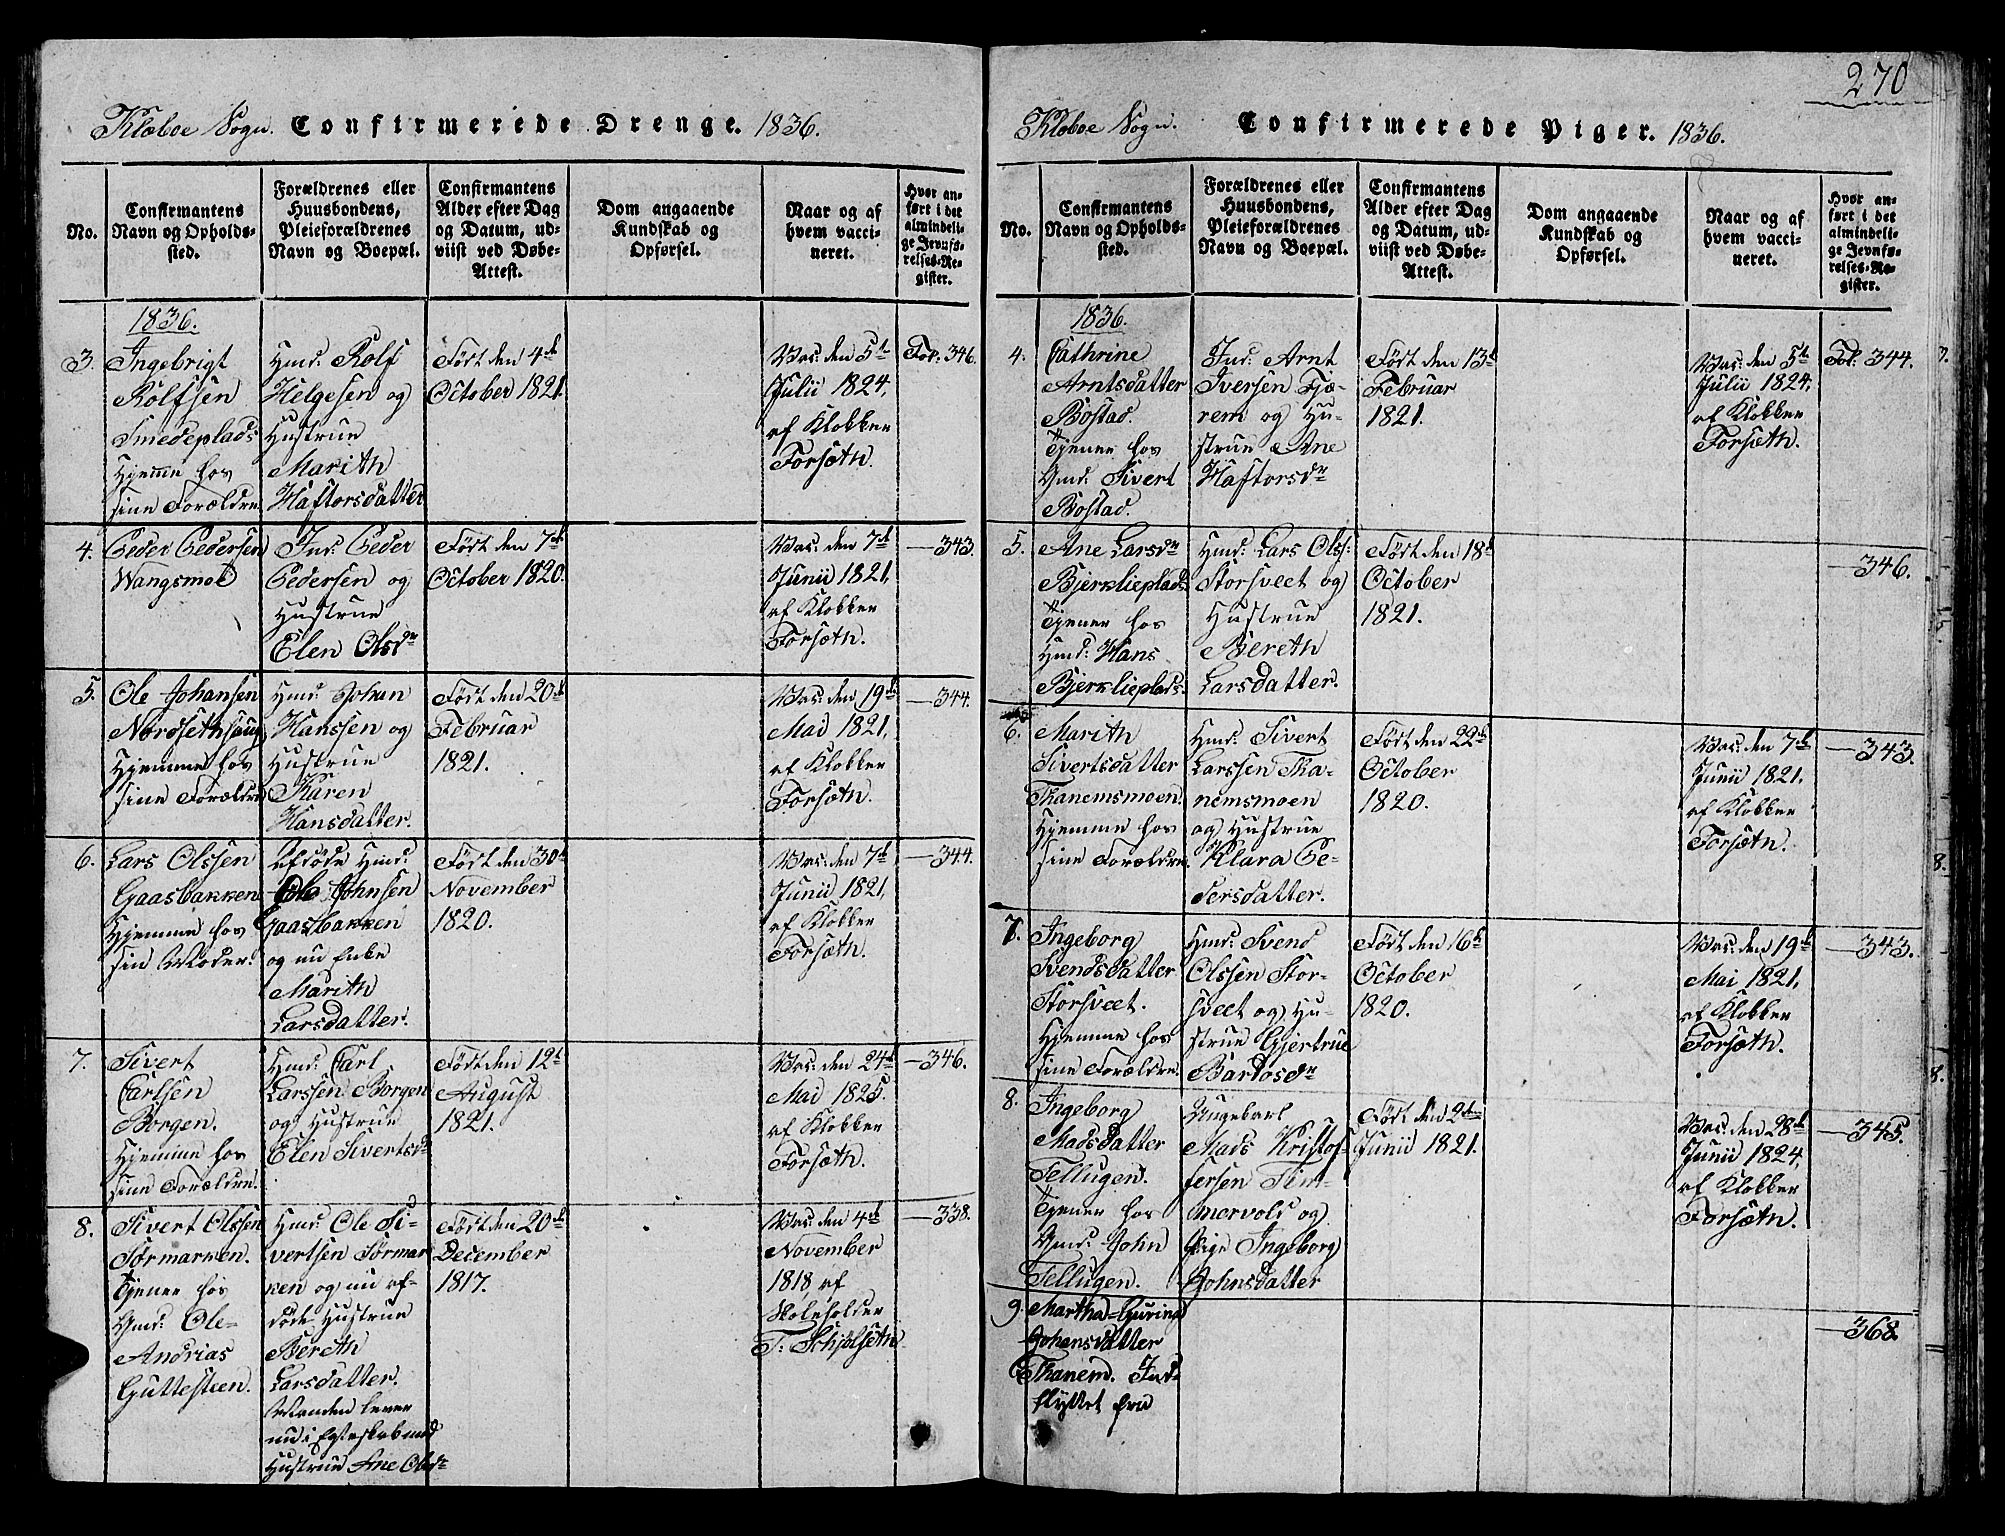 Klæboe Sogn. Confirmerede Drenge. 1836.
No.
Confirmantens
Navn og Opholds-
sted.
Forældrenes eller
Huusbondens,
Pleieforældrenes
Navn og Boepæl.
Confirmantens
Alder efter Dag
og Datum, ud-
viist ved Døbe-
Attest.
Dom angaaende
Kundskab og
Opførsel.
Naar og af
hvem vacci-
neret.
Hvor an-
ført i det
almindeli-
ge Jevnfø-
relses-Re-
gister.
1836.
3.
Ingebrigt
Rolfsen
Smedeplads
Hjemme hos
sine Forældre
Hmd: Rolf
Helgesen og
Hustrue
Marith
Haftorsdatter
Født den 4de
October 1821.
Vac: den 5te
Julii 1824,
af Klokker
Forsæth.
Fol: 346.
4.
Peder Pedersen
Wangsmoe
Ind: Peder
Pedersen og
Hustrue
Elen Olsdr
Født den 7de
October 1820.
Vac: den 7de
Junii 1821,
af Klokker
Forsæth.
—343.
5.
Ole Johansen
Nordsethhaug
Hjemme hos
sine Forældre
Hmd: Johan
Hanssen og
Hustrue
Karen
Hansdatter.
Født den 20de
Februar
1821.
Vac: den 19de
Mai 1821,
af Klokker
Forsæth.
—344.
6.
Lars Olssen
Gaasbakken
Hjemme hos
sin Moder.
Afdøde Hmd:
Ole Johnsen
Gaasbakken
og nu Enke
Marith
Larsdatter.
Født den 30te
November
1820.
Vac: den 7de
Junii 1821,
af Klokker
Forsæth.
—344.
7.
Sivert
Carlsen
Borgen.
Hjemme hos
sine Forældre.
Hmd: Carl
Larssen Borgen
og Hustrue
Elen Sivertsdr
Født den 12te
August
1821.
Vac: den 24de
Mai 1825.
af Klokker
Forsæth.
—346.
8.
Sivert Olssen
Tørmarken.
Tjener hos
Gmd: Ole-
Andrias
Guttesteen.
Hmd: Ole Si-
vertsen Tørmar
ken og nu af-
døde Hustrue
Bereth
Larsdatter.
Manden lever
nu i Egteskab med
Hustrue Ane Olsdr
Født den 20de
December
1817.
Vac: den 4de
November
1818, af
Skoleholder
T: Schjølseth.
—338.
270
Klæboe Sogn. Confirmerede Piger. 1836.
No.
Confirmantens
Navn og Opholds-
sted.
Forældrenes eller
Huusbondens,
Pleieforældrenes
Navn og Boepæl.
Confirmantens
Alder efter Dag
og Datum, ud-
viist ved Døbe-
Attest.
Dom angaaende
Kundskab og
Opførsel.
Naar og af
hvem vacci-
neret.
Hvor an-
ført i det
almindeli-
ge Jevnfø-
relses-Re-
gister.
1836.
4.
Cathrine
Arntsdatter
Bostad.
Tjener hos
Gmd: Sivert
Bostad.
Ind: Arnt
Iversen Tjæ-
rem og Hu-
strue Ane
Haftorsdr
Født den 13de
Februar
1821.
Vac: den 5te
Julii 1824,
af Klokker
Forsæth.
Fol: 344.
5.
Ane Larsdr
Bjerklieplads
Tjener hos
Hmd: Hans
Bjerklieplads.
Hmd: Lars Olss:
Storsveet og
Hustrue
Bereth
Larsdatter.
Født den 18de
October
1821.
—346.
6.
Marith
Sivertsdatter
Thanemsmoen.
Hjemme hos
sine Forældre.
Hmd: Sivert
Larssen Tha-
nemsmoen
og Hustrue
Klara Pe-
dersdatter.
Født den 22de
October
1820.
Vac: den 7de
Junii 1821.
af Klokker
Forsæth.
—343.
7.
Ingeborg
Svendsdatter
Storsveet.
Hjemme hos
sine Forældre.
Hmd: Svend
Olssen Stor-
sveet og Hu-
strue Gjertrue
Bardosdr
Født den 16de
October
1820.
Vac: den 19de
Mai 1821,
af Klokker
Forsæth.
—343.
8.
Ingeborg
Madsdatter
Tellugen.
Tjener hos
Gmd: John
Tellugen.
Ungekarl
Mads Kristof-
fersen Tim-
mervold og
Pige Ingeborg
Johnsdatter
Født den 2den
Junii 1821.
Vac: den 28de
Junii 1824,
af Klokker
Forsæth.
—345.
9.
Martha-Gurina
Johansdatter
Thanem. Ind-
flyttet fra
—368.